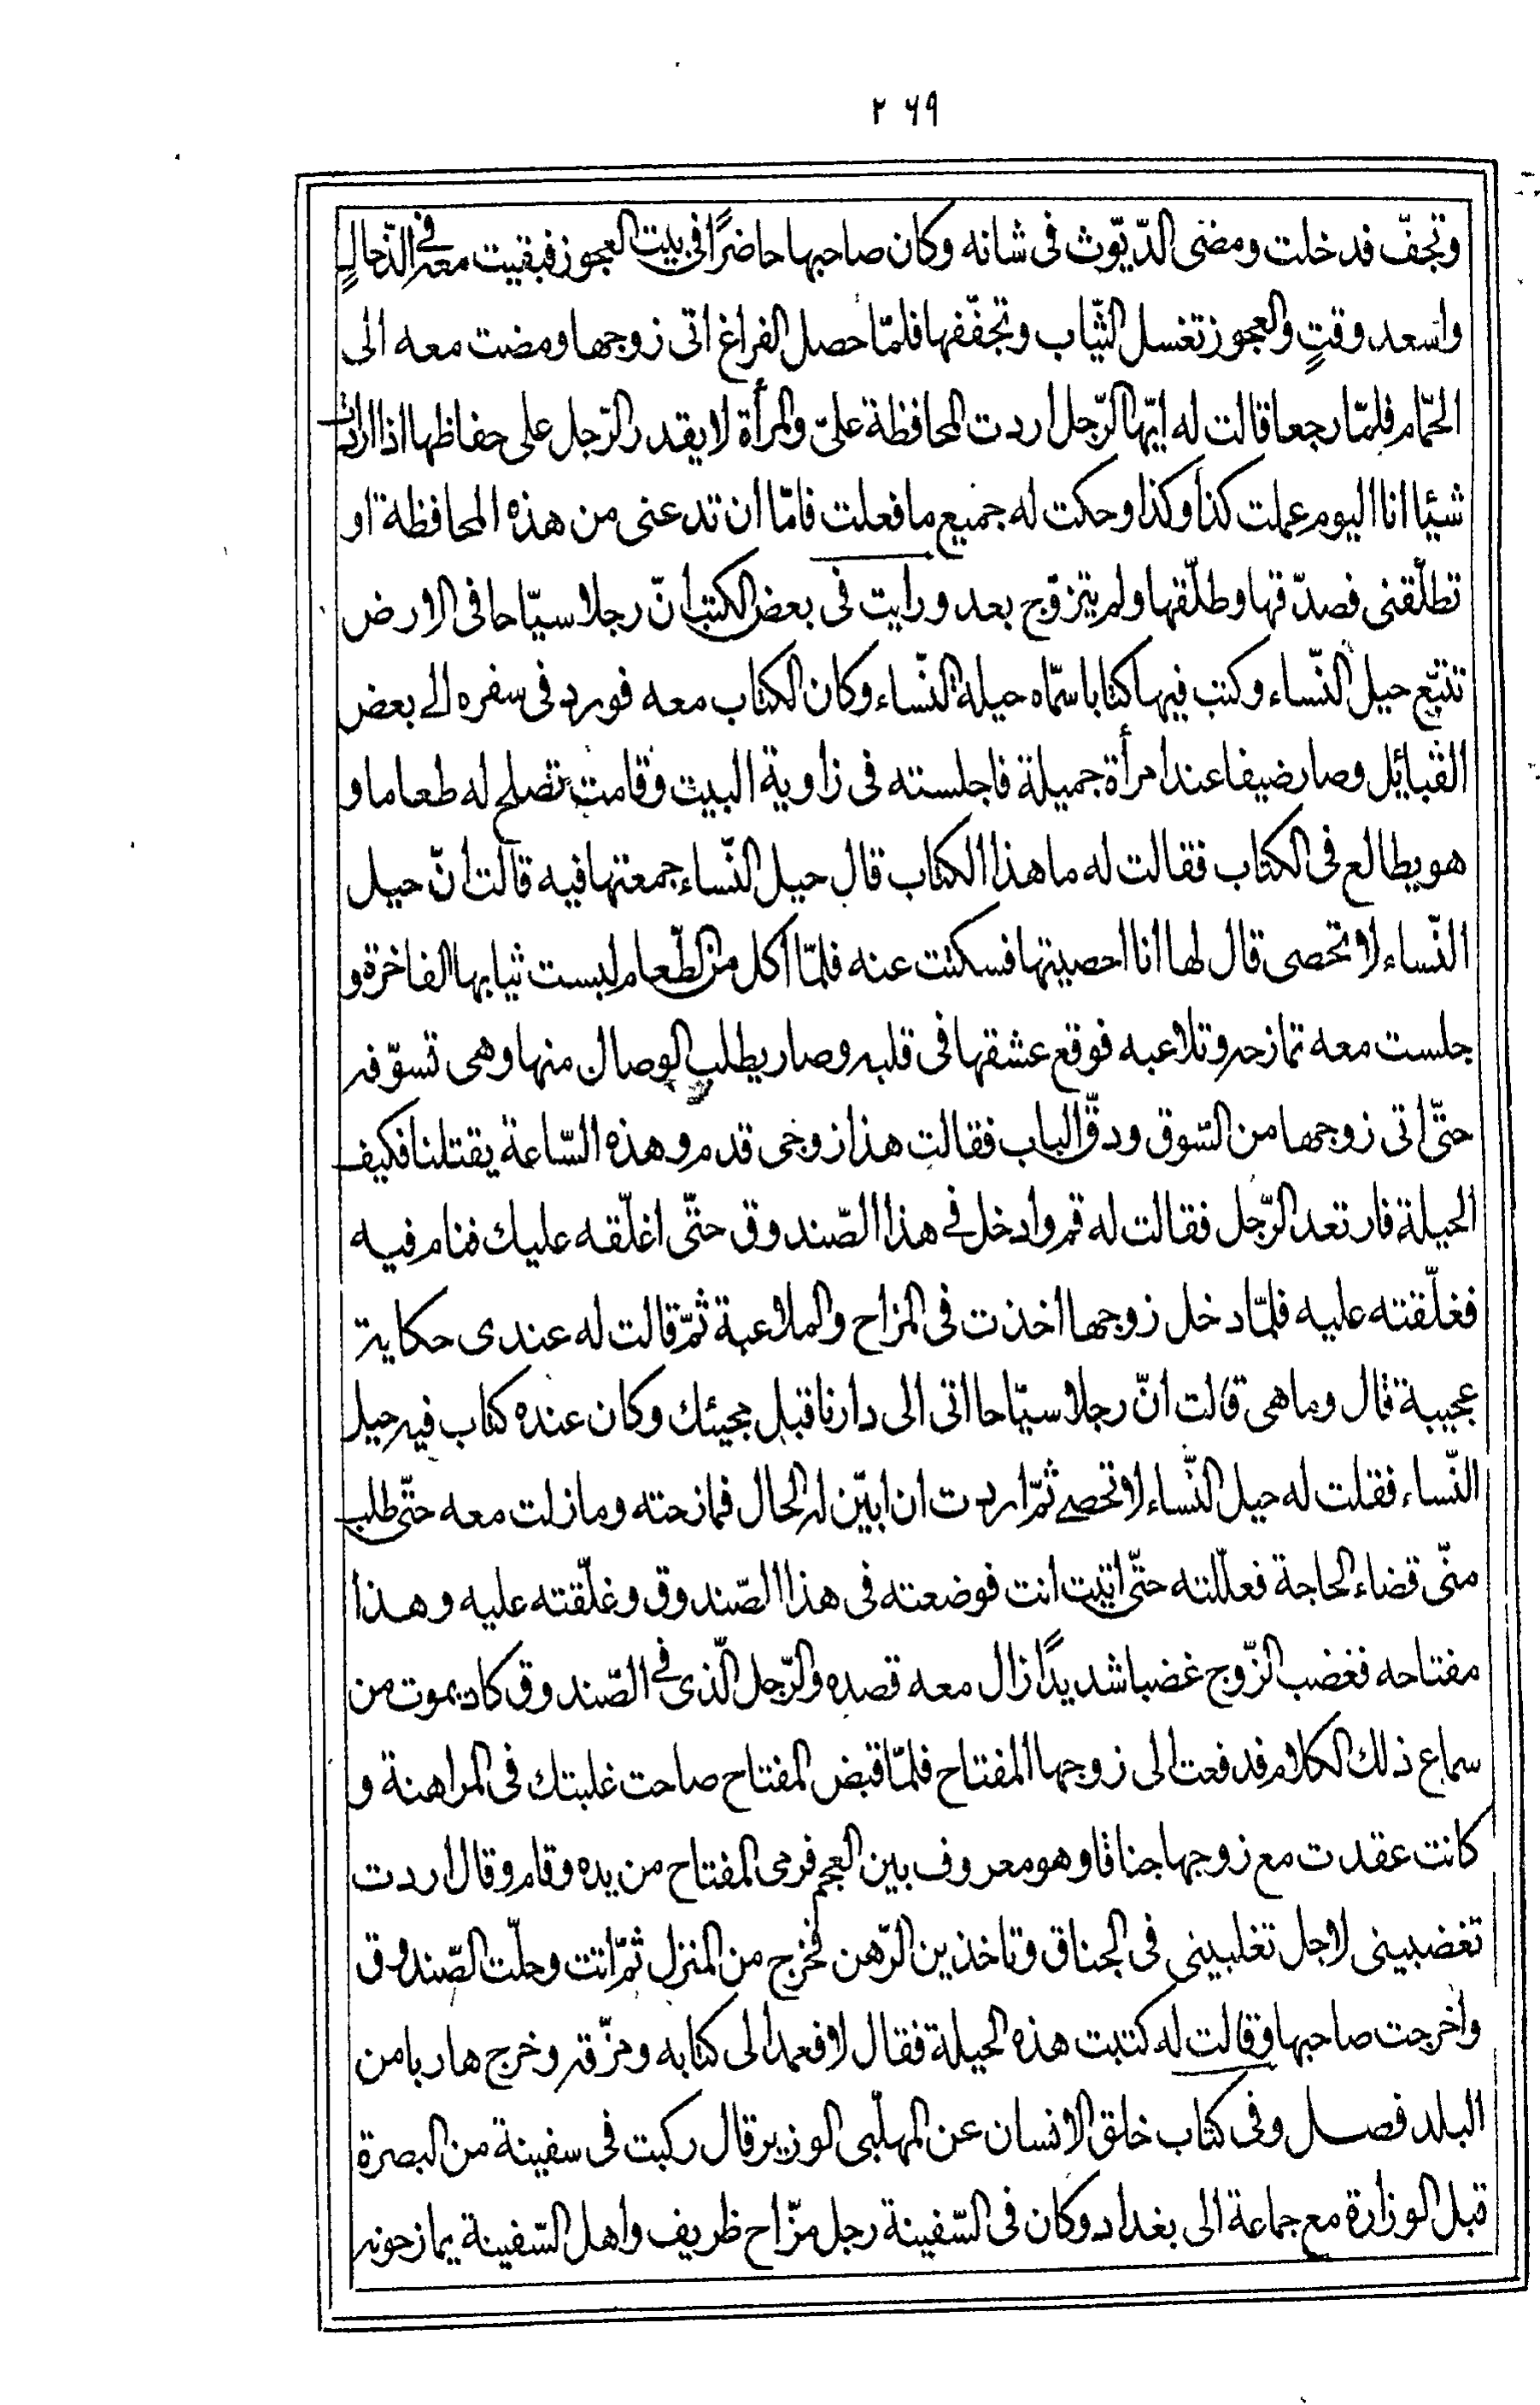 ٢٦٩
وتجفّ فدخلت ومضى الدّيّوث فى شانه وكان صاحبها حاضرًا فى بيت العجوز فبقيت معه فى الذّ حالٍ
واسعد وقتٍ والعجوز تغسل الثّياب وتجفّفها فلمّا حصل الفراغ اتى زوجها ومضت معه الى
الحمّام فلمّا رجعا قالت له ايّها الرّجل اردت المحافظة علىّ والمرأة لا يقدر الرّجل على حفاظها اذا ارادت
شيئا انا اليوم عملت كذا وكذا وحكت له جميع ما فعلت فامّا ان تدعنى من هذه المحافظة او
تطلّقنى فصدّقها وطلّقها ولم يتزوّج بعد ورايت فى بعض الكتب انّ رجلا سيّاحا فى الارض
تتبّع حيل النّساء وكتب فيها كتابا سمّاه حيلة النّساء وكان الكتاب معه فورد فى سفره الى بعض
القبائل وصار ضيفا عند امرأة جميلة فاجلسته فى زاوية البيت وقامت تصلح له طعاما و
هو يطالع فى الكتاب فقالت له ما هذا الكتاب قال حيل النّساء جمعتها فيه قالت انّ حيل
النّساء لا تحصى قال لها انا احصيتها فسكتت عنه فلمّا اكل من الطّعام لبست ثيابها الفاخرة و
جلست معه تمازحه وتلاعبه فوقع عشقها فى قلبه وصار يطلب الوصال منها وهى تسوّفه
حتّى اتى زوجها من السّوق ودقّ الباب فقالت هذا زوجى قدم وهذه السّاعة يقتلنا فكيف
الحيلة فارتعد الرّجل فقالت له قم وادخل فى هذا الصّندوق حتّى اغلّقه عليك فنام فيه
فغلّقته عليه فلمّا دخل زوجها اخذت فى المزاح والملاعبة ثمّ قالت له عندى حكاية
عجيبة قال وما هى قالت انّ رجلا سيّاحا اتى الى دارنا قبل مجيئك وكان عنده كتاب فيه حيل
النّساء فقلت له حيل النّساء لا تحصى ثمّ اردت ان ابيّن له الحال فمازحته وما زلت معه حتّى طلب
منّى قضاء الحاجة فعلّلته حتّى اتيت انت فوضعته فى هذا الصّندوق وغلّقته عليه وهذا
مفتاحه فغضب الزّوج غضبا شديدًا زال معه قصده والرّجل الّذى فى الصّندوق كاد يموت من
سماع ذلك الكلام فدفعت الى زوجها المفتاح فلمّا قبض المفتاح صاحت غلبتك فى المراهنة و
كانت عقدت مع زوجها جناقا وهو معروف بين العجم فرمى المفتاح من يده وقام وقال اردت
تغضبينى لاجل تغلبينى فى الجناق وتاخذين الرّهن فخرج من المنزل ثمّ اتت وحلّت الصّندوق
واخرجت صاحبها وقالت له كتبت هذه الحيلة فقال لا فعمد الى كتابه ومزّقه وخرج هاربا من
البلد فصل وفى كتاب خلق الانسان عن المهلّبى الوزير قال ركبت فى سفينة من البصرة
قبل الوزارة مع جماعة الى بغداد وكان فى السّفينة رجل مزّاح ظريف واهل السّفينة يمازحونه